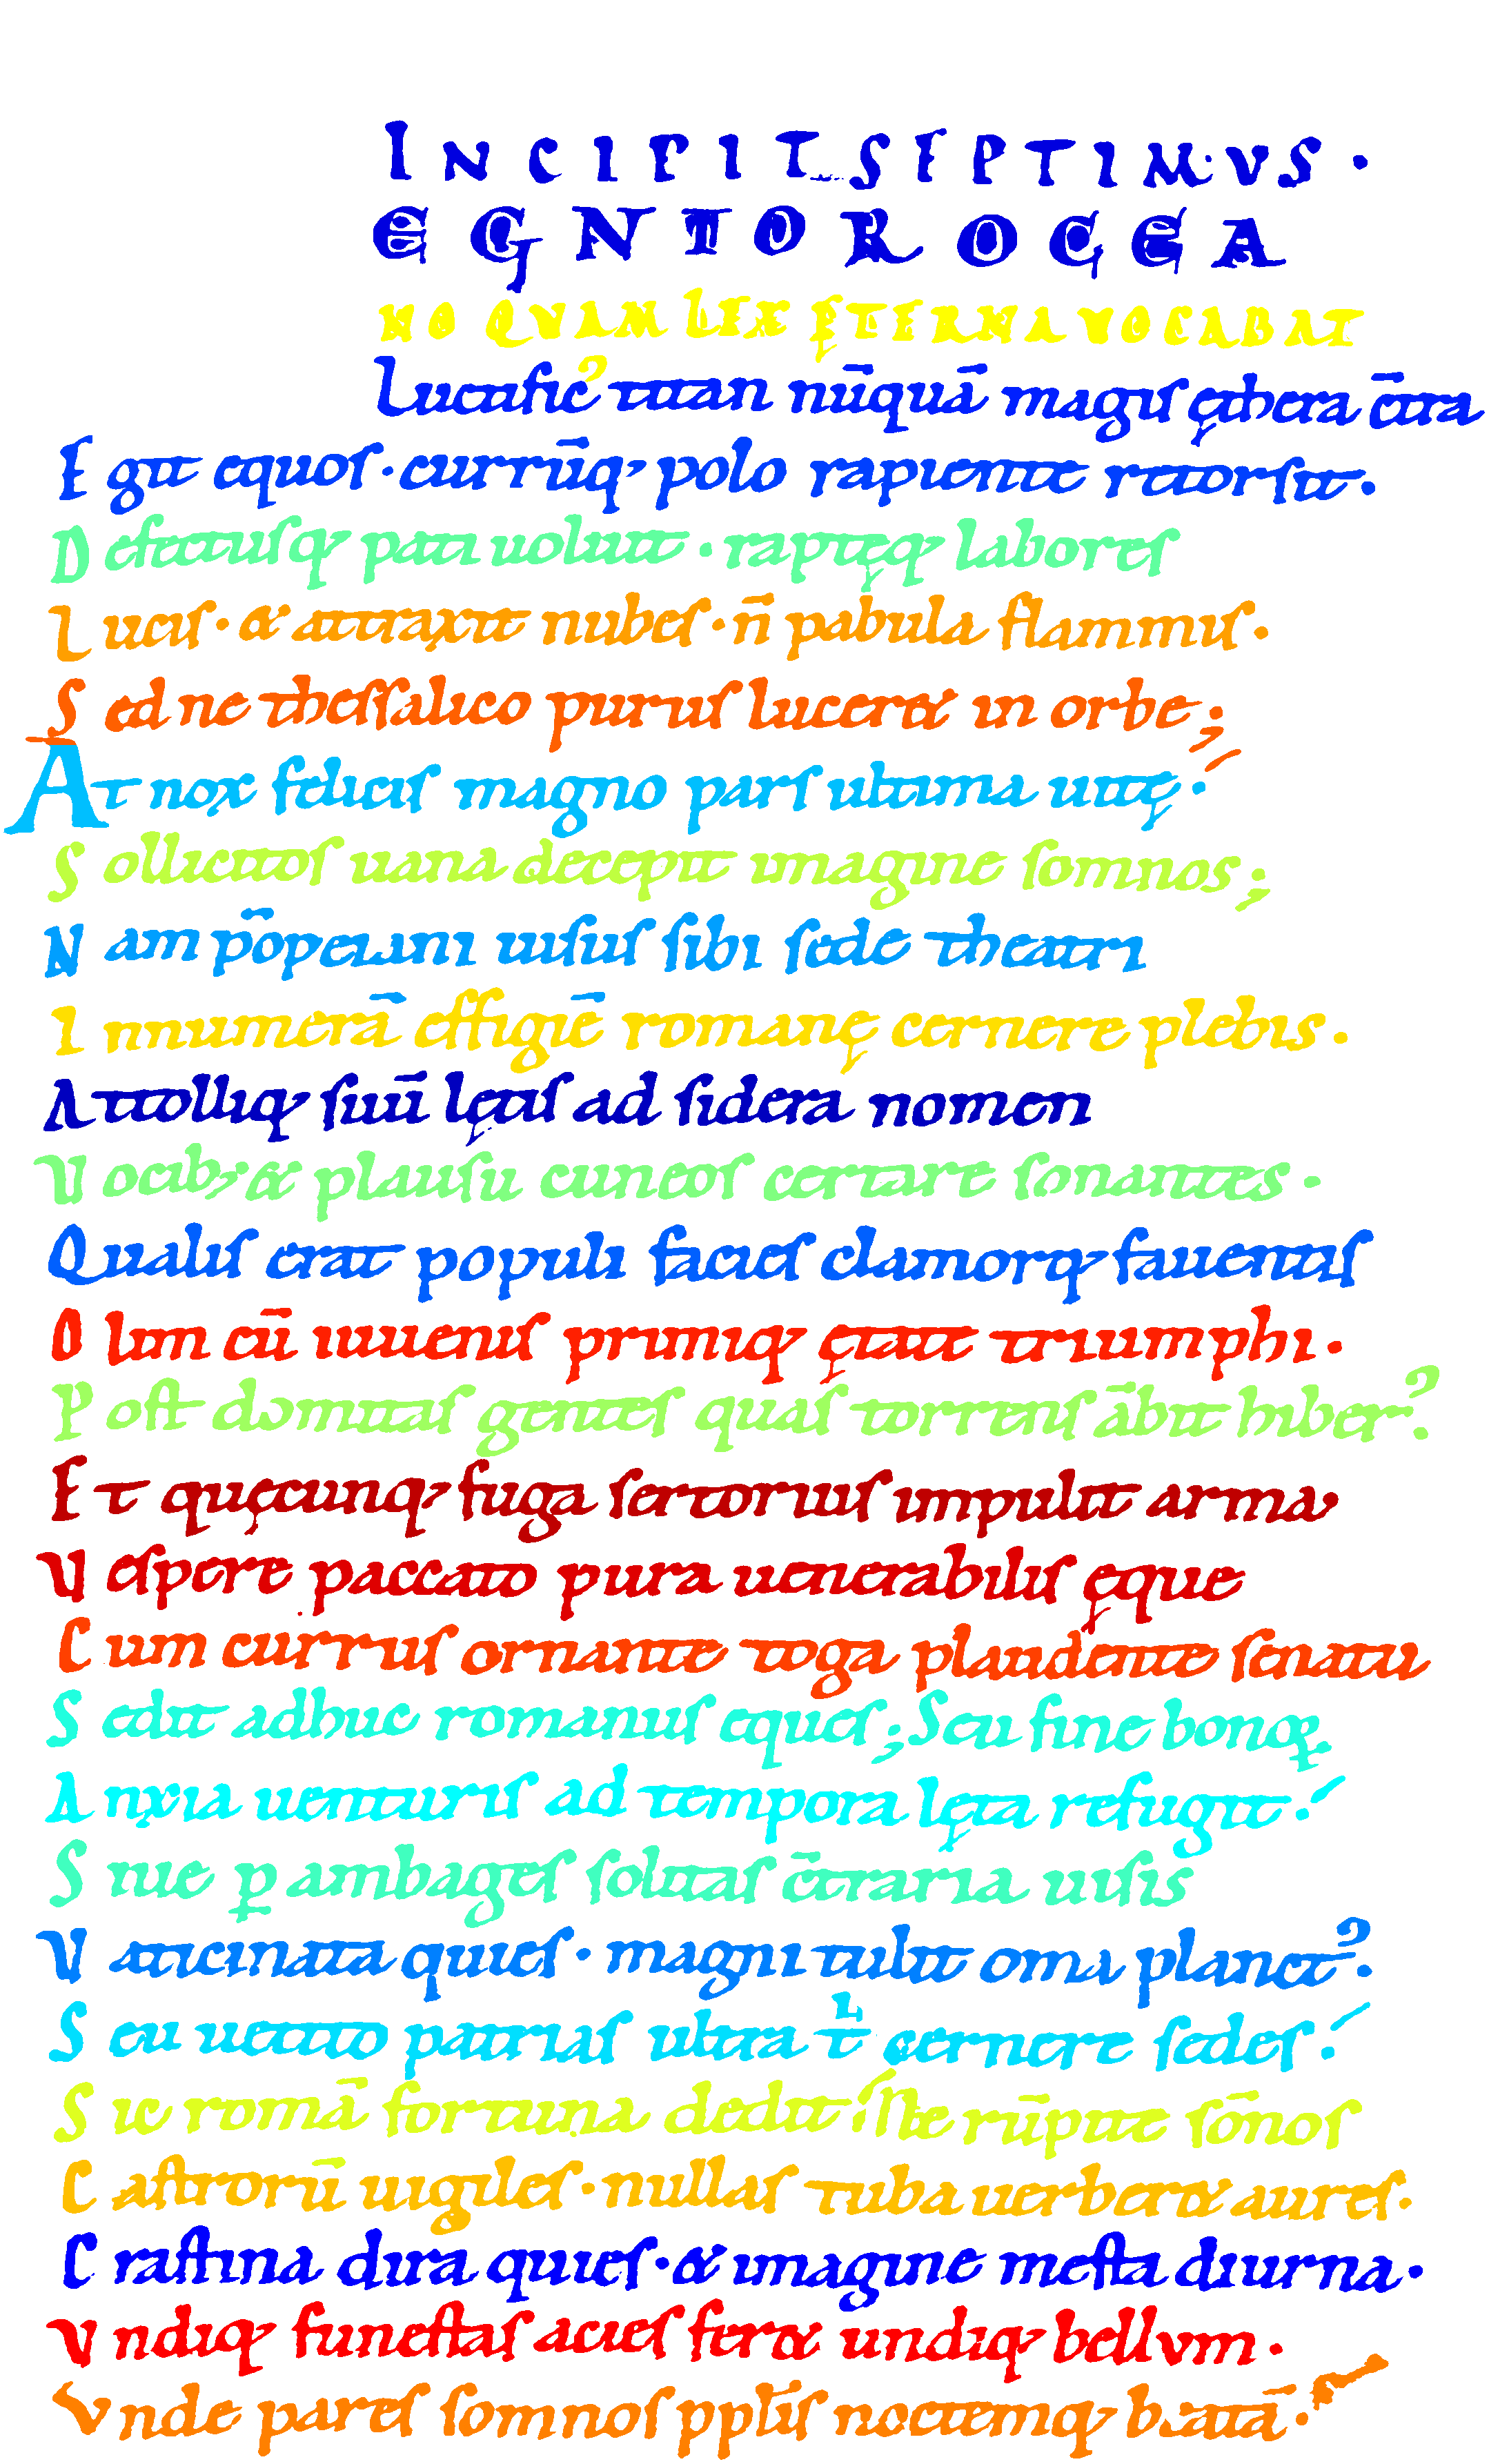 INCIPIT SEPTIMVS·
EGNIOR OCCEA
NO QVAM LEX ĘTERNA VOCABAT
Luctific᾽ titan nū̄quā magis ęthera cͣtra
Egit equos· currūq; polo rapiente retorsit·
Defectusq; pati uoluit· raptęq; labores
Lucis· & attraxit nubes· n̄ pabula flammis·
Sed ne thessalico purus luceret in orbe;
At nox felicis magno pars ultima uitę·
Sollicitos uana decepit imagine somnos;
Nam pōpeiani uisus sibi sede theatri
Innumerā effigiē romanę cernere plebis·
Attolliq; suū lętis ad sidera nomen
Vocib; & plausu cuneos certare sonantes·
Qualis erat populi facies clamorq; fauentis
Olim cū iuuenis primiq; ętate triumphi·
Post domitas gentes quas torrens ābit hiber?
Et quęcunq; fuga sertorius impulit arma
Vespere paccato pura uenerabilis ęque
Cum currus ornante toga plaudente senatu
Sedit adhuc romanus eques; Seu fine bonoꝝ
Anxia uenturis ad tempora lęta refugit·
Siue ꝑ ambages solitas c̄traria uisis
Vaticinata quies· magni tulit omina planct᾽·
Seu uetito patrias ultra t͛ cernere sedes·
Sic romā fortuna dedit· ne rūpite sōnos
Castrorū uigiles· nullas tuba uerberet aures·
Crastina dira quies· & imagine mesta diurna·
Vndiq; funestas acies feret undiq; bellvm·
Vnde pares somnos pplis noctemq; beatā·